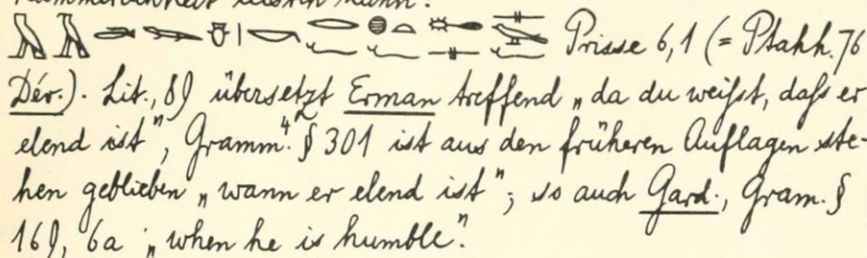 Prisse 6,1 (= Ptahh. 76
Dév.). Lit., 89 übersetzt Erman treffend „da du weißt, daß er
elend ist", Gramm⁴. § 301 ist aus den früheren Auflagen ste-
hen geblieben „wann er elend ist"; so auch Gard., Gram. §
169, 6a „when he is humble".